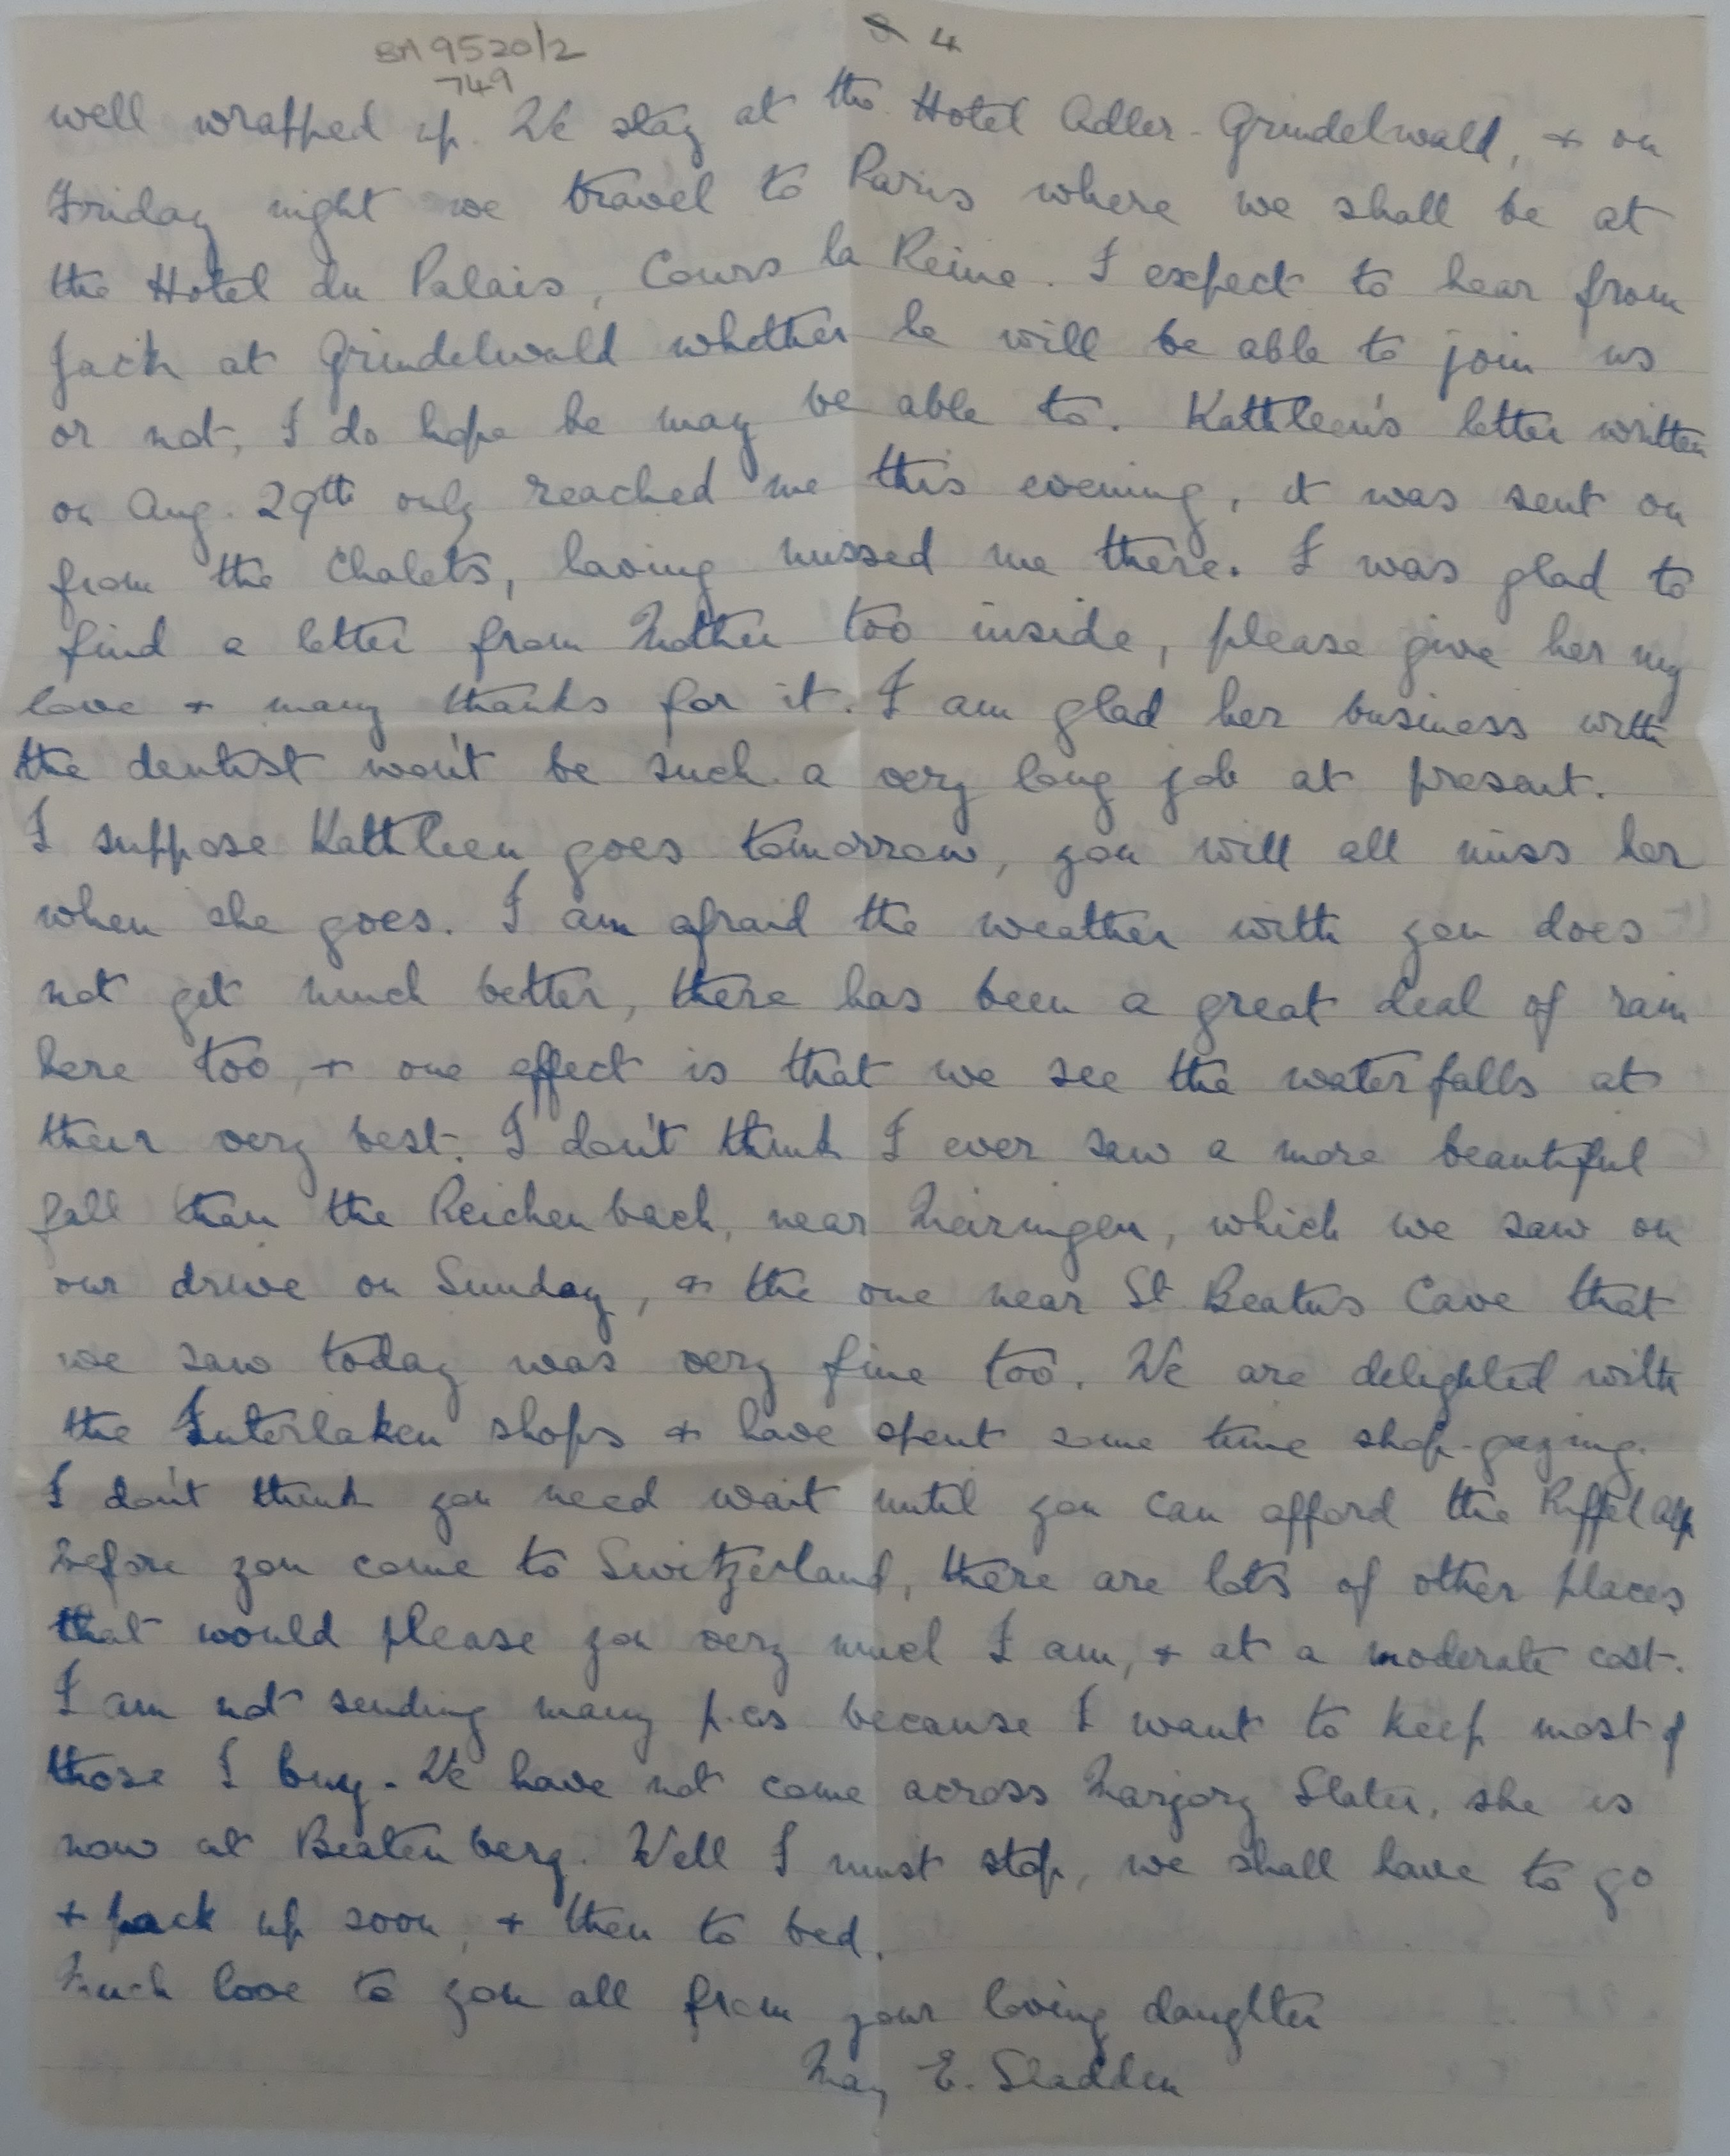 BA 9520/2
749
4
well wrapped up. We stay at the Hotel Adler - Grindelwald, + on
Friday night we travel to Paris where we shall be at
the Hotel du Palais, Cours la Reine. I expect to hear from
Jack at Grindelwald whether he will be able to join us
or not, I do hope he may be able to. Kathleen's letter written
on Aug. 29th only reached me this evening, it was sent on
from the Chalets, having missed me there. I was glad to
find a letter from Mother too inside, please give her my
love + many thanks for it. I am glad her business with
the dentist won't be such a very long job at present.
I suppose Kathleen goes tomorrow, you will all miss her
when she goes. I am afraid the weather with you does
not get much better, there has been a great deal of rain
here too, + one effect is that we see the waterfalls at
their very best. I don't think I ever saw a more beautiful
fall than the Reichenbach, near Meiringen, which we saw on
our drive on Sunday, + the one near St Beatus Cave that
we saw today was very fine too. We are delighted with
the Interlaken shops + have spent some time shop-gazing.
I don't think you need wait until you can afford the Riffel Alp
before you come to Switzerland, there are lots of other places
that would please you very much I am, + at a moderate cost.
I am not sending many p.cs because I want to keep most of
those I buy. We have not come across Marjory Slater, she is
now at Beatenberg. Well I must stop, we shall have to go
+ pack up soon, + then to bed.
Much love to you all from your loving daughter
May E. Sladden